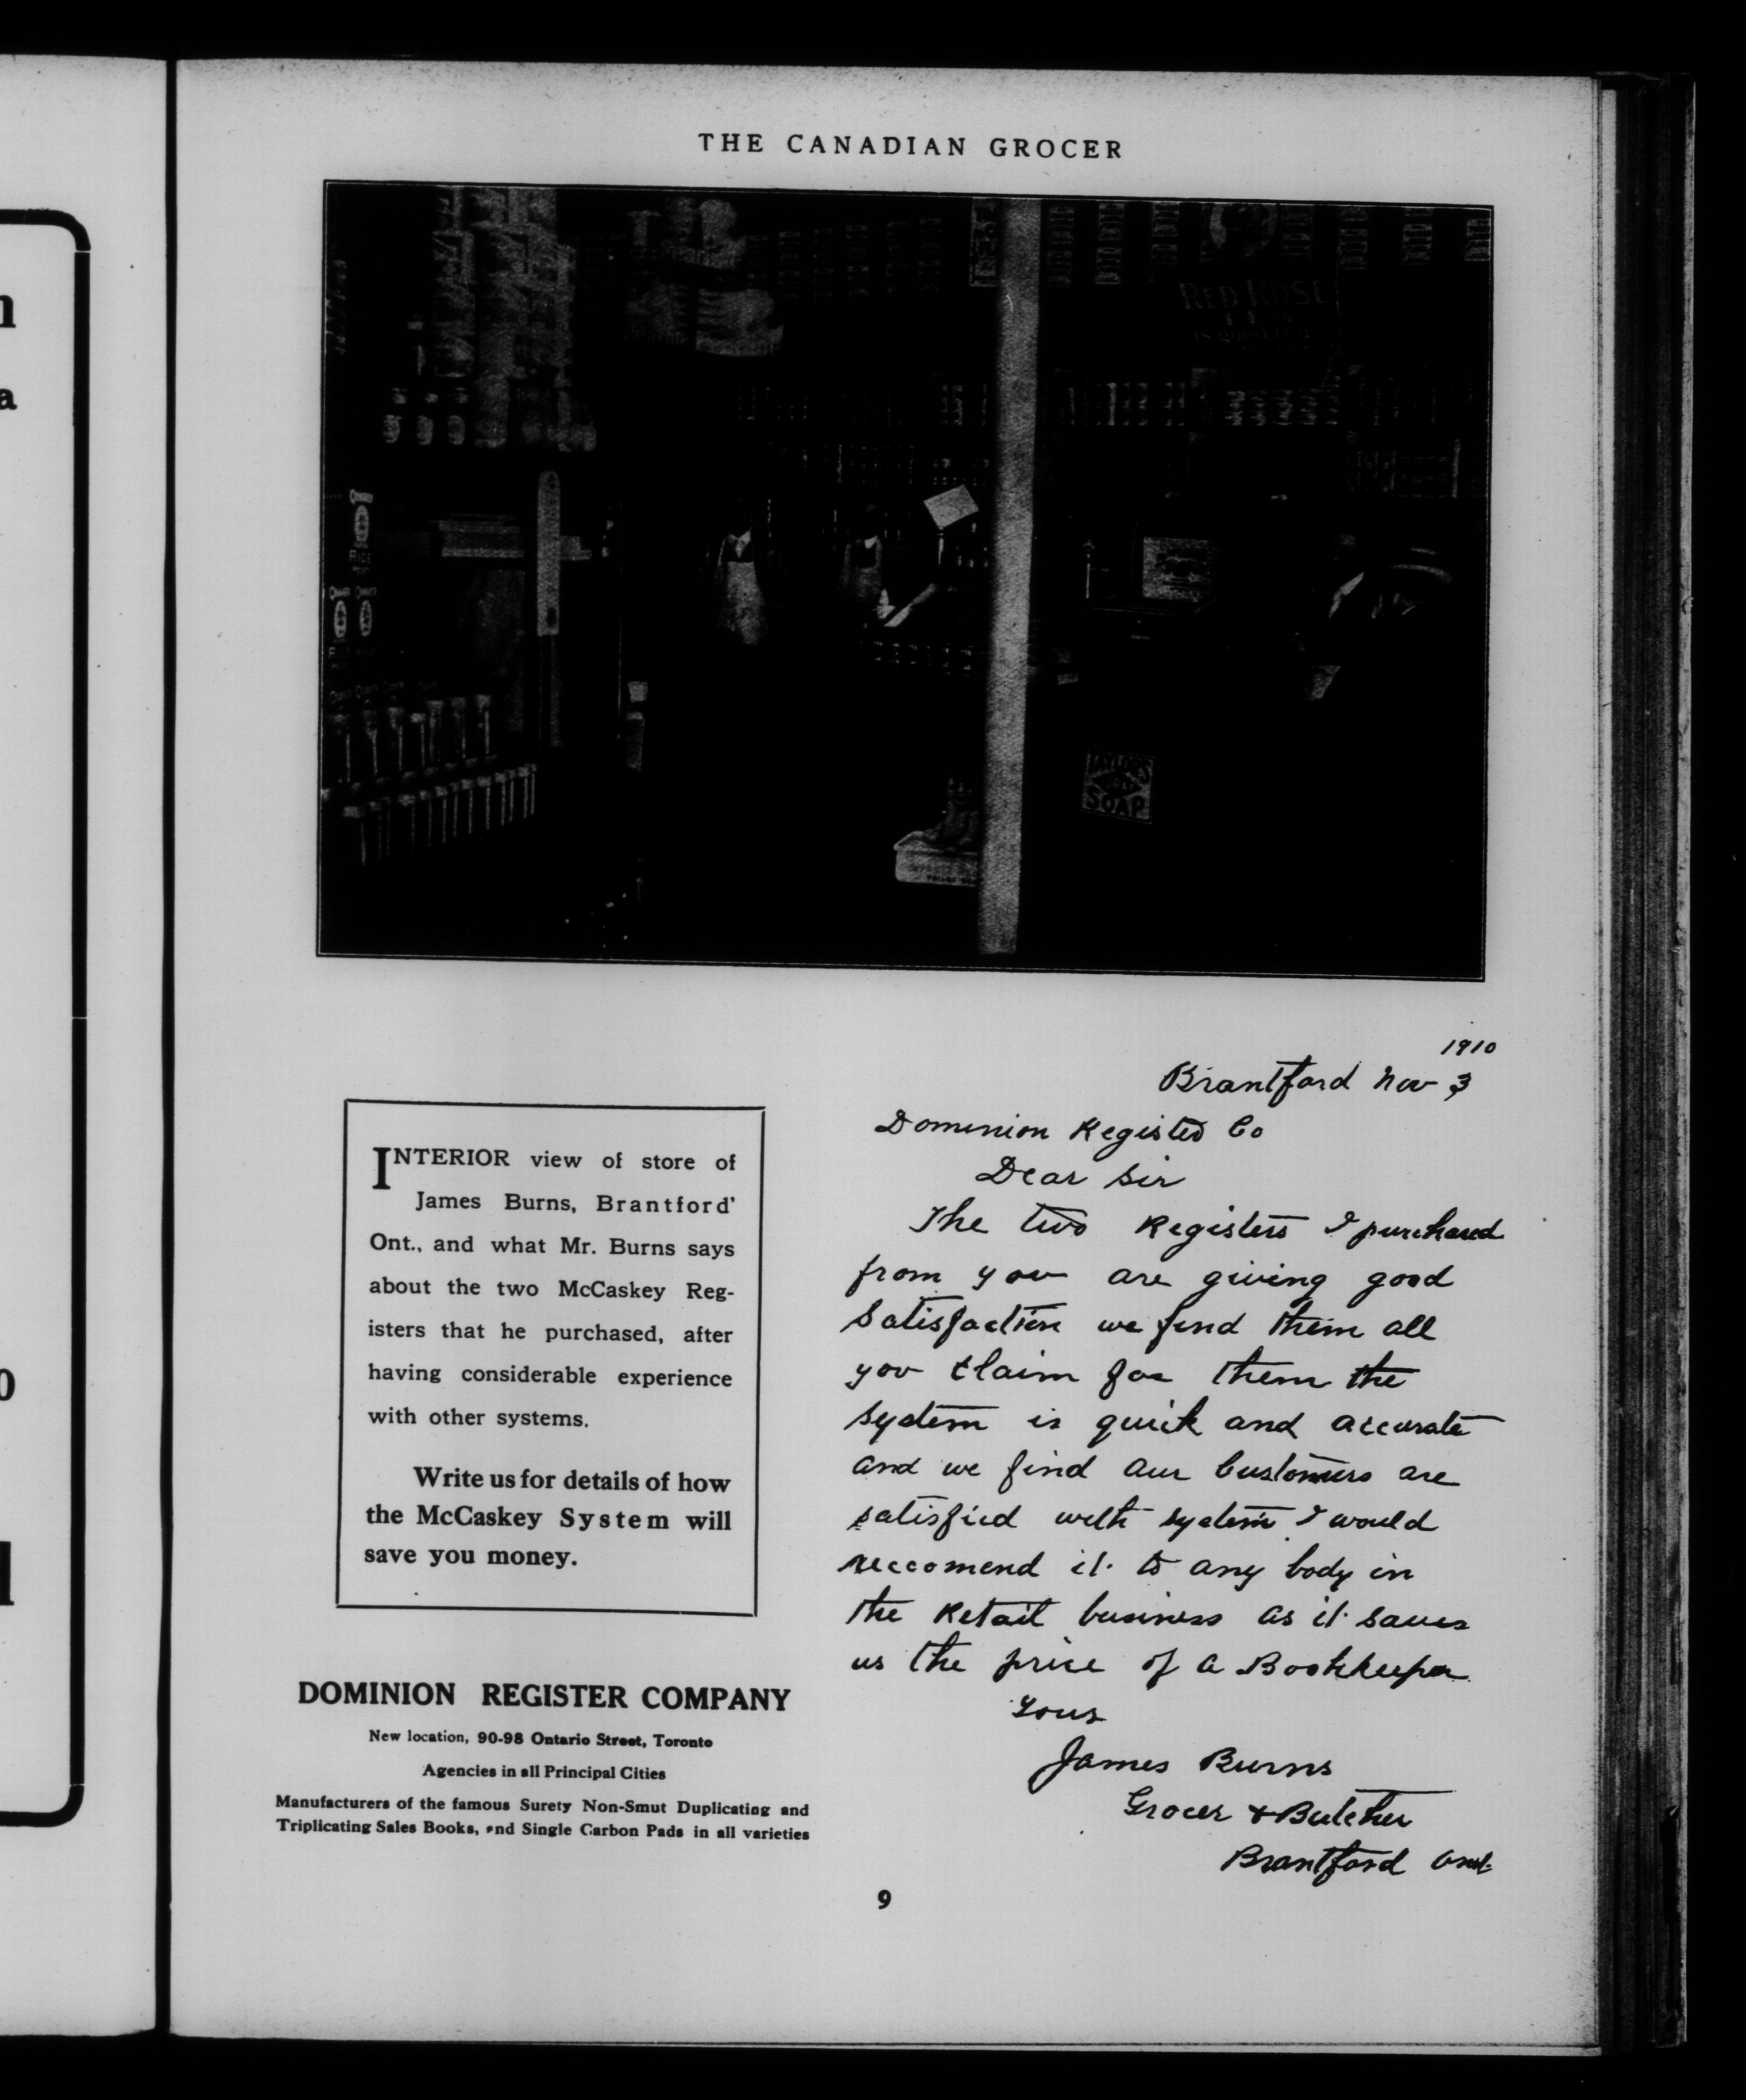 THE CANADIAN GROCER
RED ROSE
TEA
is good tea
TAYLOR'S
SOAP
1910
Brantford Nov 3
Dominion Register Co
Dear Sir
The two Registers I purchased
from you are giving good
satisfaction we find them all
you claim for them the
system is quick and accurate
and we find our Customers are
satisfied with system I would
reccomend it to any body in
the Retail business as it saves
us the price of a Bookkeeper
Yous
James Burns
Grocer & Butcher
Brantford Ont.
INTERIOR view of store of
James Burns, Brantford'
Ont., and what Mr. Burns says
about the two McCaskey Reg-
isters that he purchased, after
having considerable experience
with other systems.
Write us for details of how
the McCaskey System will
save you money.
DOMINION REGISTER COMPANY
New location, 90-98 Ontario Street, Toronto
Agencies in all Principal Cities
Manufacturers of the famous Surety Non-Smut Duplicating and
Triplicating Sales Books, and Single Carbon Pads in all varieties
9